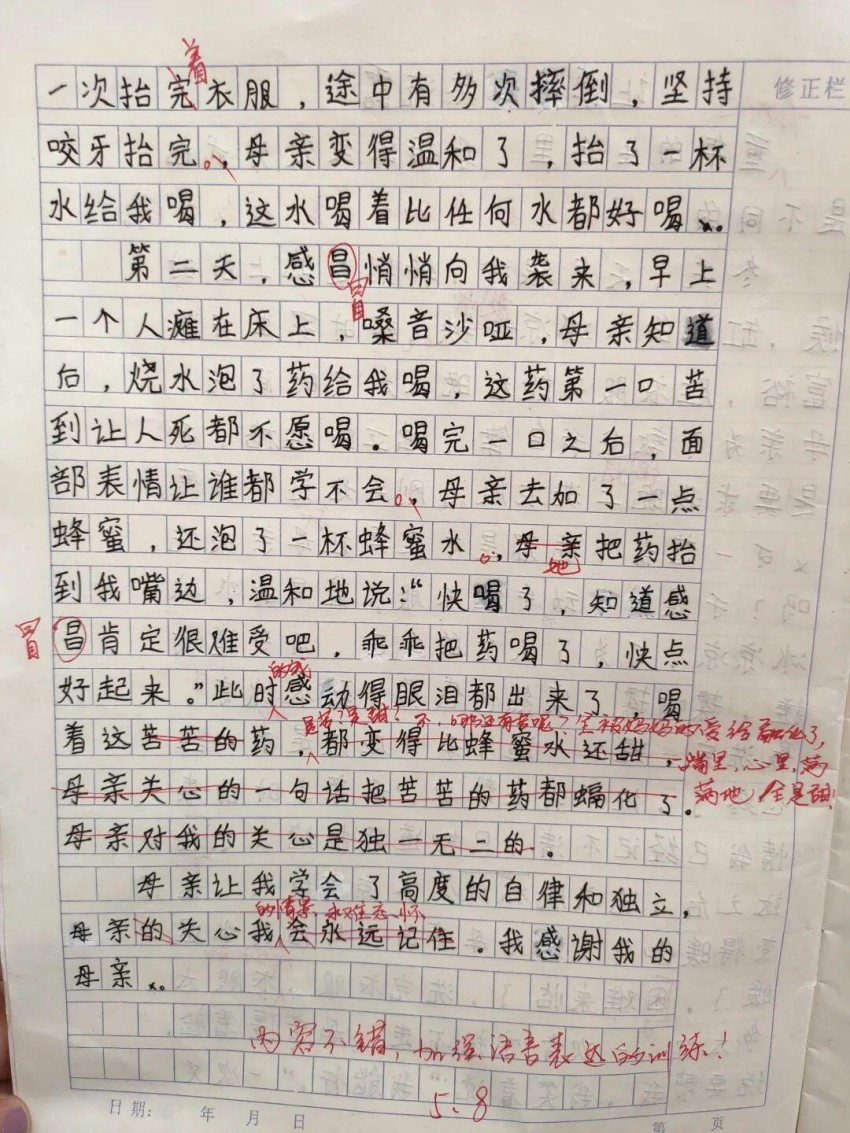 着
一次抬完衣服，途中有多次摔倒，坚持
修正栏
咬牙抬完。，母亲变得温和了，抬了一杯
水给我喝，这水喝着比任何水都好喝。
第二天，感昌悄悄向我袭来，早上
冒
一个人瘫在床上，嗓音沙哑，母亲知道
后，烧水泡了药给我喝，这药第一口苦
到让人死都不愿喝。喝完一口之后，面
部表情让谁都学不会。，母亲去加了一点
蜂蜜，还泡了一杯蜂蜜水。，母亲把药抬
她
到我嘴边，温和地说：“快喝了，知道感
冒
昌肯定很难受吧，乖乖把药喝了，快点
好起来。”此时感动得眼泪都出来了，喝
的我
是苦？是甜？不，哪还有苦呢？全被妈妈的爱给融化了，
着这苦苦的药，都变得比蜂蜜水还甜，
嘴里，心里，满
母亲关心的一句话把苦苦的药都蝙化了。
满地，全是甜！
母亲对我的关心是独一无二的。
母亲让我学会了高度的自律和独立，
的情景，永难忘怀
母亲的关心我会永远记住。我感谢我的
母亲。
内容不错，加强语言表达的训练！
5.8
日期： 年 月 日
第 页